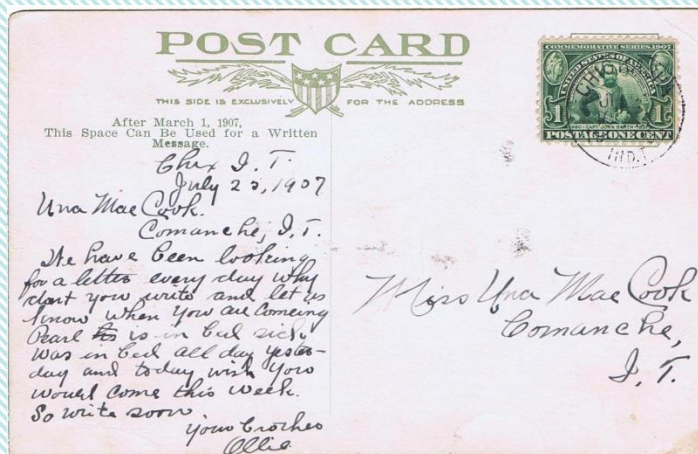 POST CARD
THIS SIDE IS EXCLUSIVELY FOR THE ADDRESS
After March 1, 1907,
This Space Can Be Used for a Written
Message.
Chix I. T.
July 25, 1907
Una Mae Cook.
Comanche, I. T.
We have been looking
for a letter every day why
dont you write and let us
know when you are comeing
Pearl is in bed sick
was in bed all day yester-
day and today wish you
would come this week.
So write soon
your brother
Ollie
COMMEMORATIVE SERIES 1907
UNITED STATES OF AMERICA
1 1
POSTAGE ONE CENT
IND. T.
Miss Una Mae Cook
Comanche,
I. T.